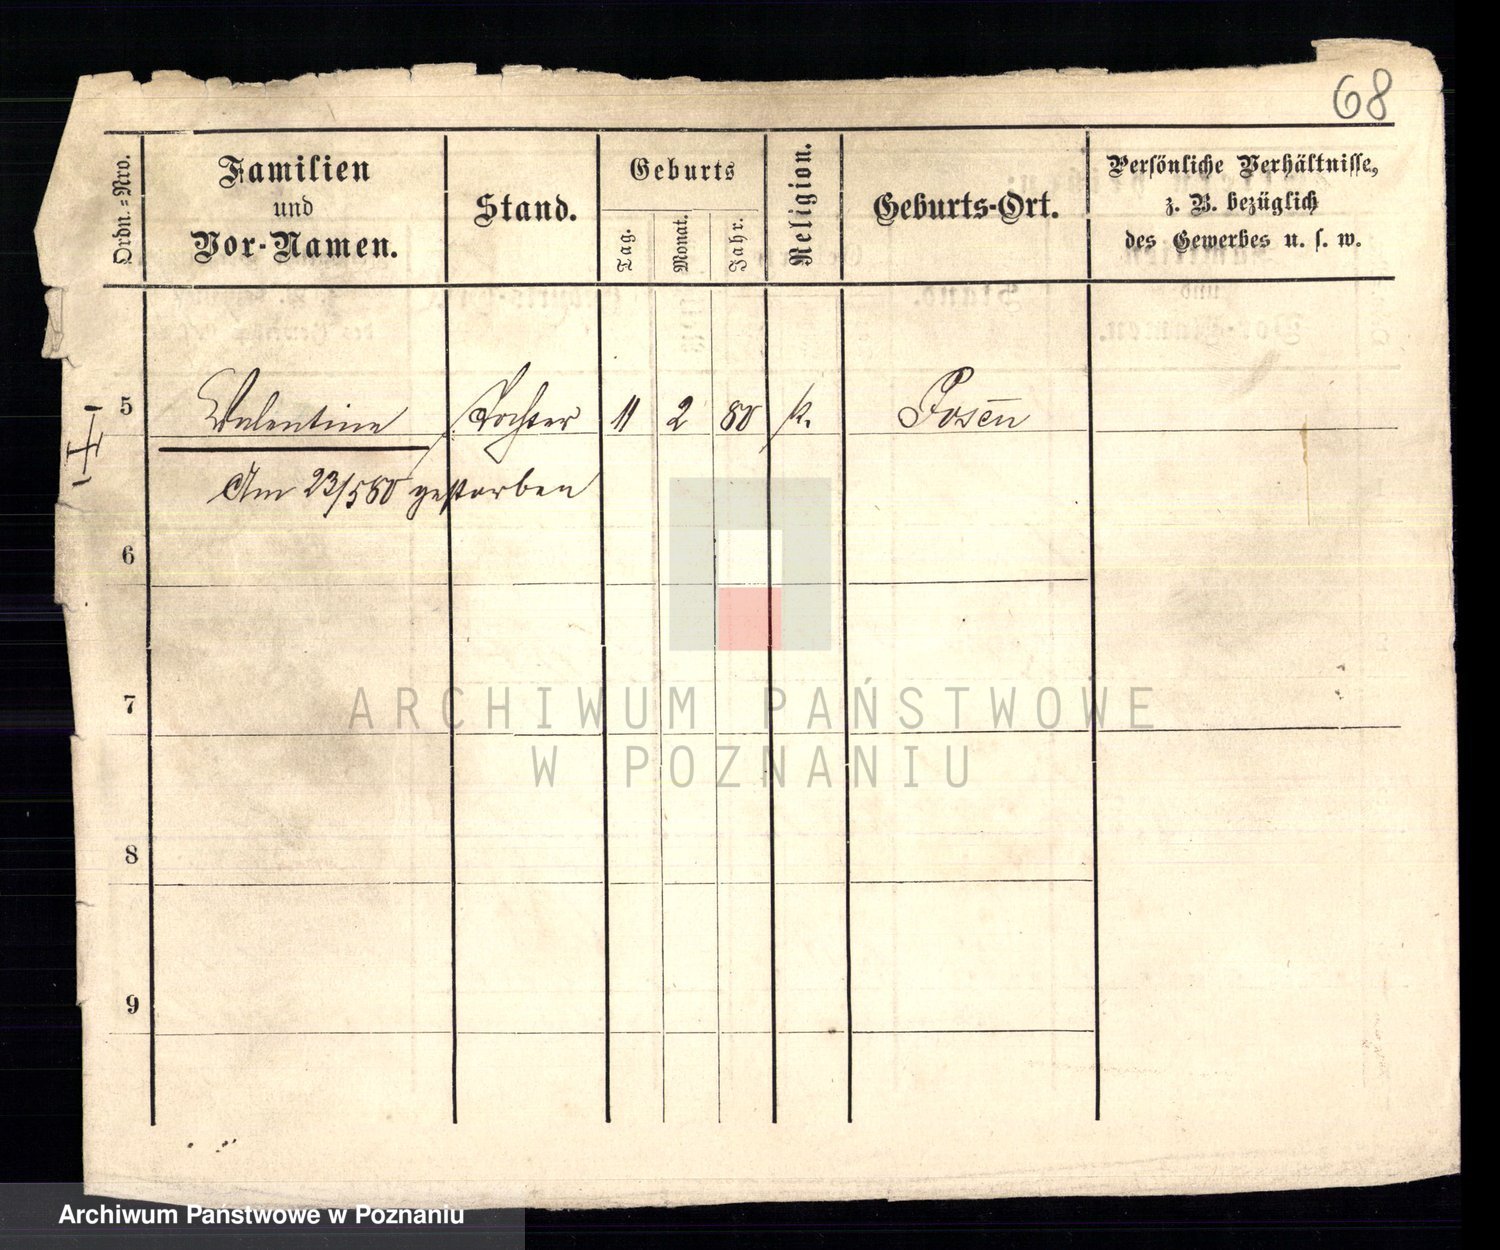 68
Ordn.-Nro.
Familien
und
Vor-Namen.
Stand.
Geburts
Tag.
Monat.
Jahr.
Religion.
Geburts-Ort.
Persönliche Verhältnisse,
z. B. bezüglich
des Gewerbes u. s. w.
5 Valentine Tochter 11 2 80 k. Posen
Am 23/5 80 gestorben
6
7
8
9
ARCHIWUM PAŃSTWOWE
W POZNANIU
Archiwum Państwowe w Poznaniu